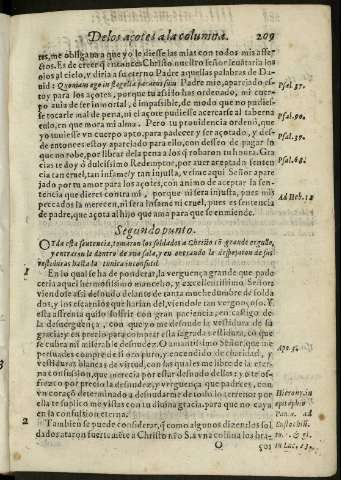 De los açotes a la columna. 209
tes, me obligan a que yo le diesse las mias con todos mis afec-
tos. Es de creer q entonces Christo nuestro señor leuãtaria los
ojos al cielo, y diria a su eterno Padre aquellas palabras de Da-
uid: Quoniam ego in flagella paratus sum Padre mio, aparejado es-
toy para los açotes, porque tu assi lo has ordenado, mi cuer-
po auia de ser inmortal, è impassible, de modo que no pudies-
se tocarle mal de pena, ni el açote pudiesse acercarse al taberna
culo, en que mora mi alma. Pero tu prouidencia ordenò, que
yo tuuiesse vn cuerpo apto, para padecer y ser açotado, y des-
de entonces estoy aparejado para ello, con desseo de pagar lo
que no robe, por librar de la pena a los q robaron tu honra. Gra
cias te doy ò dulcissimo Redemptor, por auer aceptado senten
cia tan cruel, tan infame y tan injusta, veisme aqui Señor apare
jado por tu amor para los açotes, con animo de aceptar la sen-
tencia que dieres contra mi, porque ni sera injusta, pues mis
peccados la merecen, ni serà infame ni cruel, pues es sentencia
de padre, que açota al hijo que ama para que se enmiende.
Psal. 37.
Psal. 90.
Psal. 39.
Psal. 68.
Ad Heb. 12
Segundo punto.
OYda esta sentencia, tomaron los soldados a Christo cõ grande orgullo,
y entraron le dentro de una sala, y en entrando le despojaron de sus
vestiduras hasta la tunica inconsutil.
1 En lo qual se ha de ponderar, la verguença grande que pade
ceria aquel hermosissimo mancebo, y excellentissimo Señor
viendose assi desnudo delante de tanta muchedumbre de solda
dos, y los escarnios que harian del, viendole tan vergonçoso. Y
esta afrenta quiso sufrir con gran paciencia, en castigo de
la desuerguença, con que yo me desnude la vestidura de su
gracia: y en precio para comprar essa sagrada vestidura, cõ que
se cubra mi miserable desnudez. O amantissimo Señor, que me
persuades compre de ti oro puro, y encendido de charidad, y
vestiduras blancas de virtud, con las quales me libre de la eterna
na confusion, que merecia por estar desnudo dellas; yo te of-
frezco por precio la desnudez, y verguença que padeces, con
vn coraçõ determinado a desnudarme de todo lo terreno por
ella: te suplico me vistas con tu diuina gracia, para que no caya
en la confusion eterna.
Apo. 3.
2 Tambien se puede considerar, q como algunos dizen los sol
dados ataron fuertemẽte a Christo nro S. a vna colũna los bra-
O
ços
Hieronym. in
epitaphio
Paulæ. ad
Eustochiũ.
in Luc. 23.